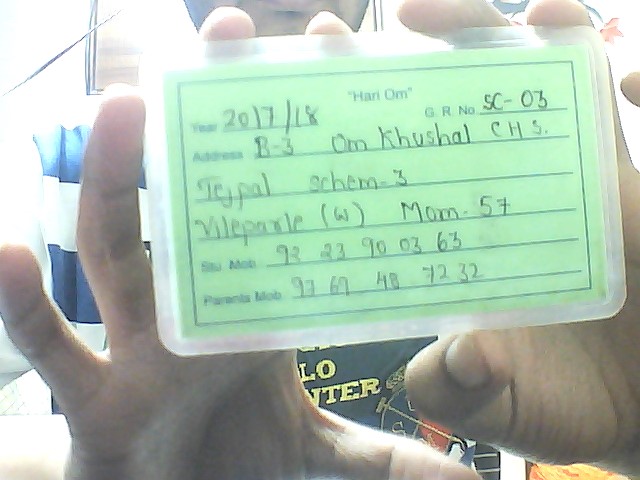 "Hari Om"
Year 2017/18 G. R. No. SC-03
Address B-3 Om Khushal C H S.
Tejpal schem-3
Vileparle (W) Mom-57
Stu Mob 92 23 90 03 63
Parents Mob 97 69 48 72 32
LO
NTER